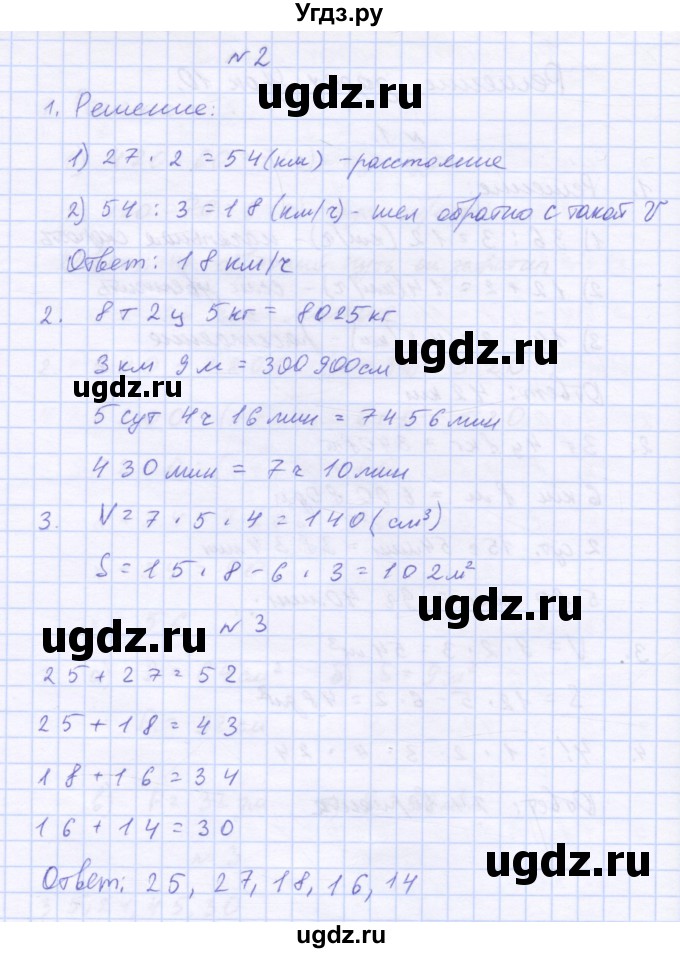 Угдз.ру
№2
ugdz.ru
1. Решение:
1) 27 · 2 = 54(км) - расстояние
2) 54 : 3 = 18 (км/ч) - шел обратно с такой V
Ответ: 18 км/ч
ugdz.ru
2. 8т 2ц 5кг = 8025кг
3км 9м = 300 900см
ugdz.ru
5 сут 4ч 16мин = 7456мин
430мин = 7ч 10мин
3. V=7 · 5 · 4 = 140(см³)
ugdz.ru
S=15 · 8 - 6 · 3 = 102м²
ugdz.ru
№3
ugdz.ru
25+27=52
25+18=43
18+16=34
16+14=30
ugdz.ru
Ответ: 25, 27, 18, 16, 14
ugdz.ru